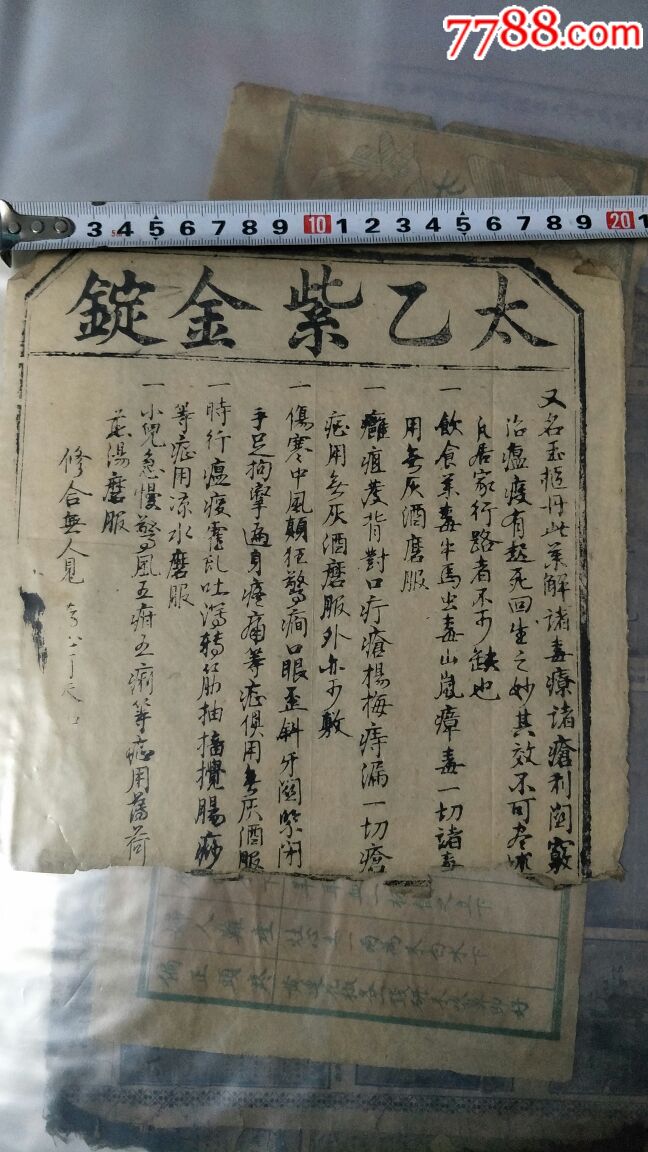 7788.com
3 4 5 6 7 8 9 10 1 2 3 4 5 6 7 8 9 20 1
太乙紫金錠
又名玉樞丹此藥解諸毒療諸瘡利関竅
治瘟疫有起死回生之妙其效不可尽
凡居家行路者不可缺也
一飲食藥毒牛馬虫毒山嵐瘴毒一切諸毒
用無灰酒磨服
一癰疽發背對口疔瘡楊梅痔漏一切瘡
症用無灰酒磨服外亦可敷
一傷寒中風顛狂驚癇口眼歪斜牙関緊閉
手足拘攣遍身疼痛等症俱用無灰酒服
一時行瘟疫霍乱吐瀉轉筋抽搐攪腸痧
等症用凉水磨服
一小兒急慢驚風五疳五痢等症用薄荷
煎湯磨服
修合無人見
偏正頭